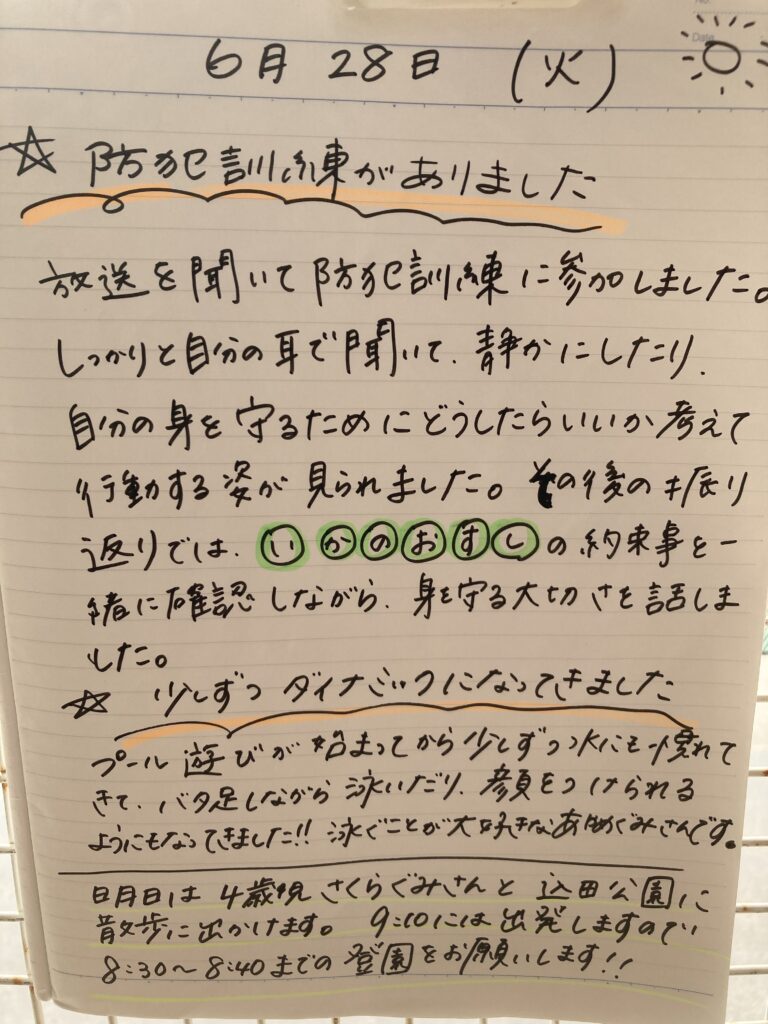 6月28日 (火)
☆ 防犯訓練がありました
放送を聞いて防犯訓練に参加しました。
しっかりと自分の耳で聞いて、静かにしたり、
自分の身を守るためにどうしたらいいか考えて
行動する姿が見られました。その後の振り
返りでは、いかのおすしの約束事を一
緒に確認しながら、身を守る大切さを話しま
した。
☆ 少しずつダイナミックになってきました
プール遊びが始まってから少しずつ水にも慣れて
きて、バタ足しながら泳いだり、顔をつけられる
ようにもなってきました!! 泳ぐことが大好きなあめぐみさんです。
明日は4歳児さくらぐみさんと込田公園に
散歩に出かけます。 9:10には出発しますので
8:30〜8:40までの登園をお願いします!!